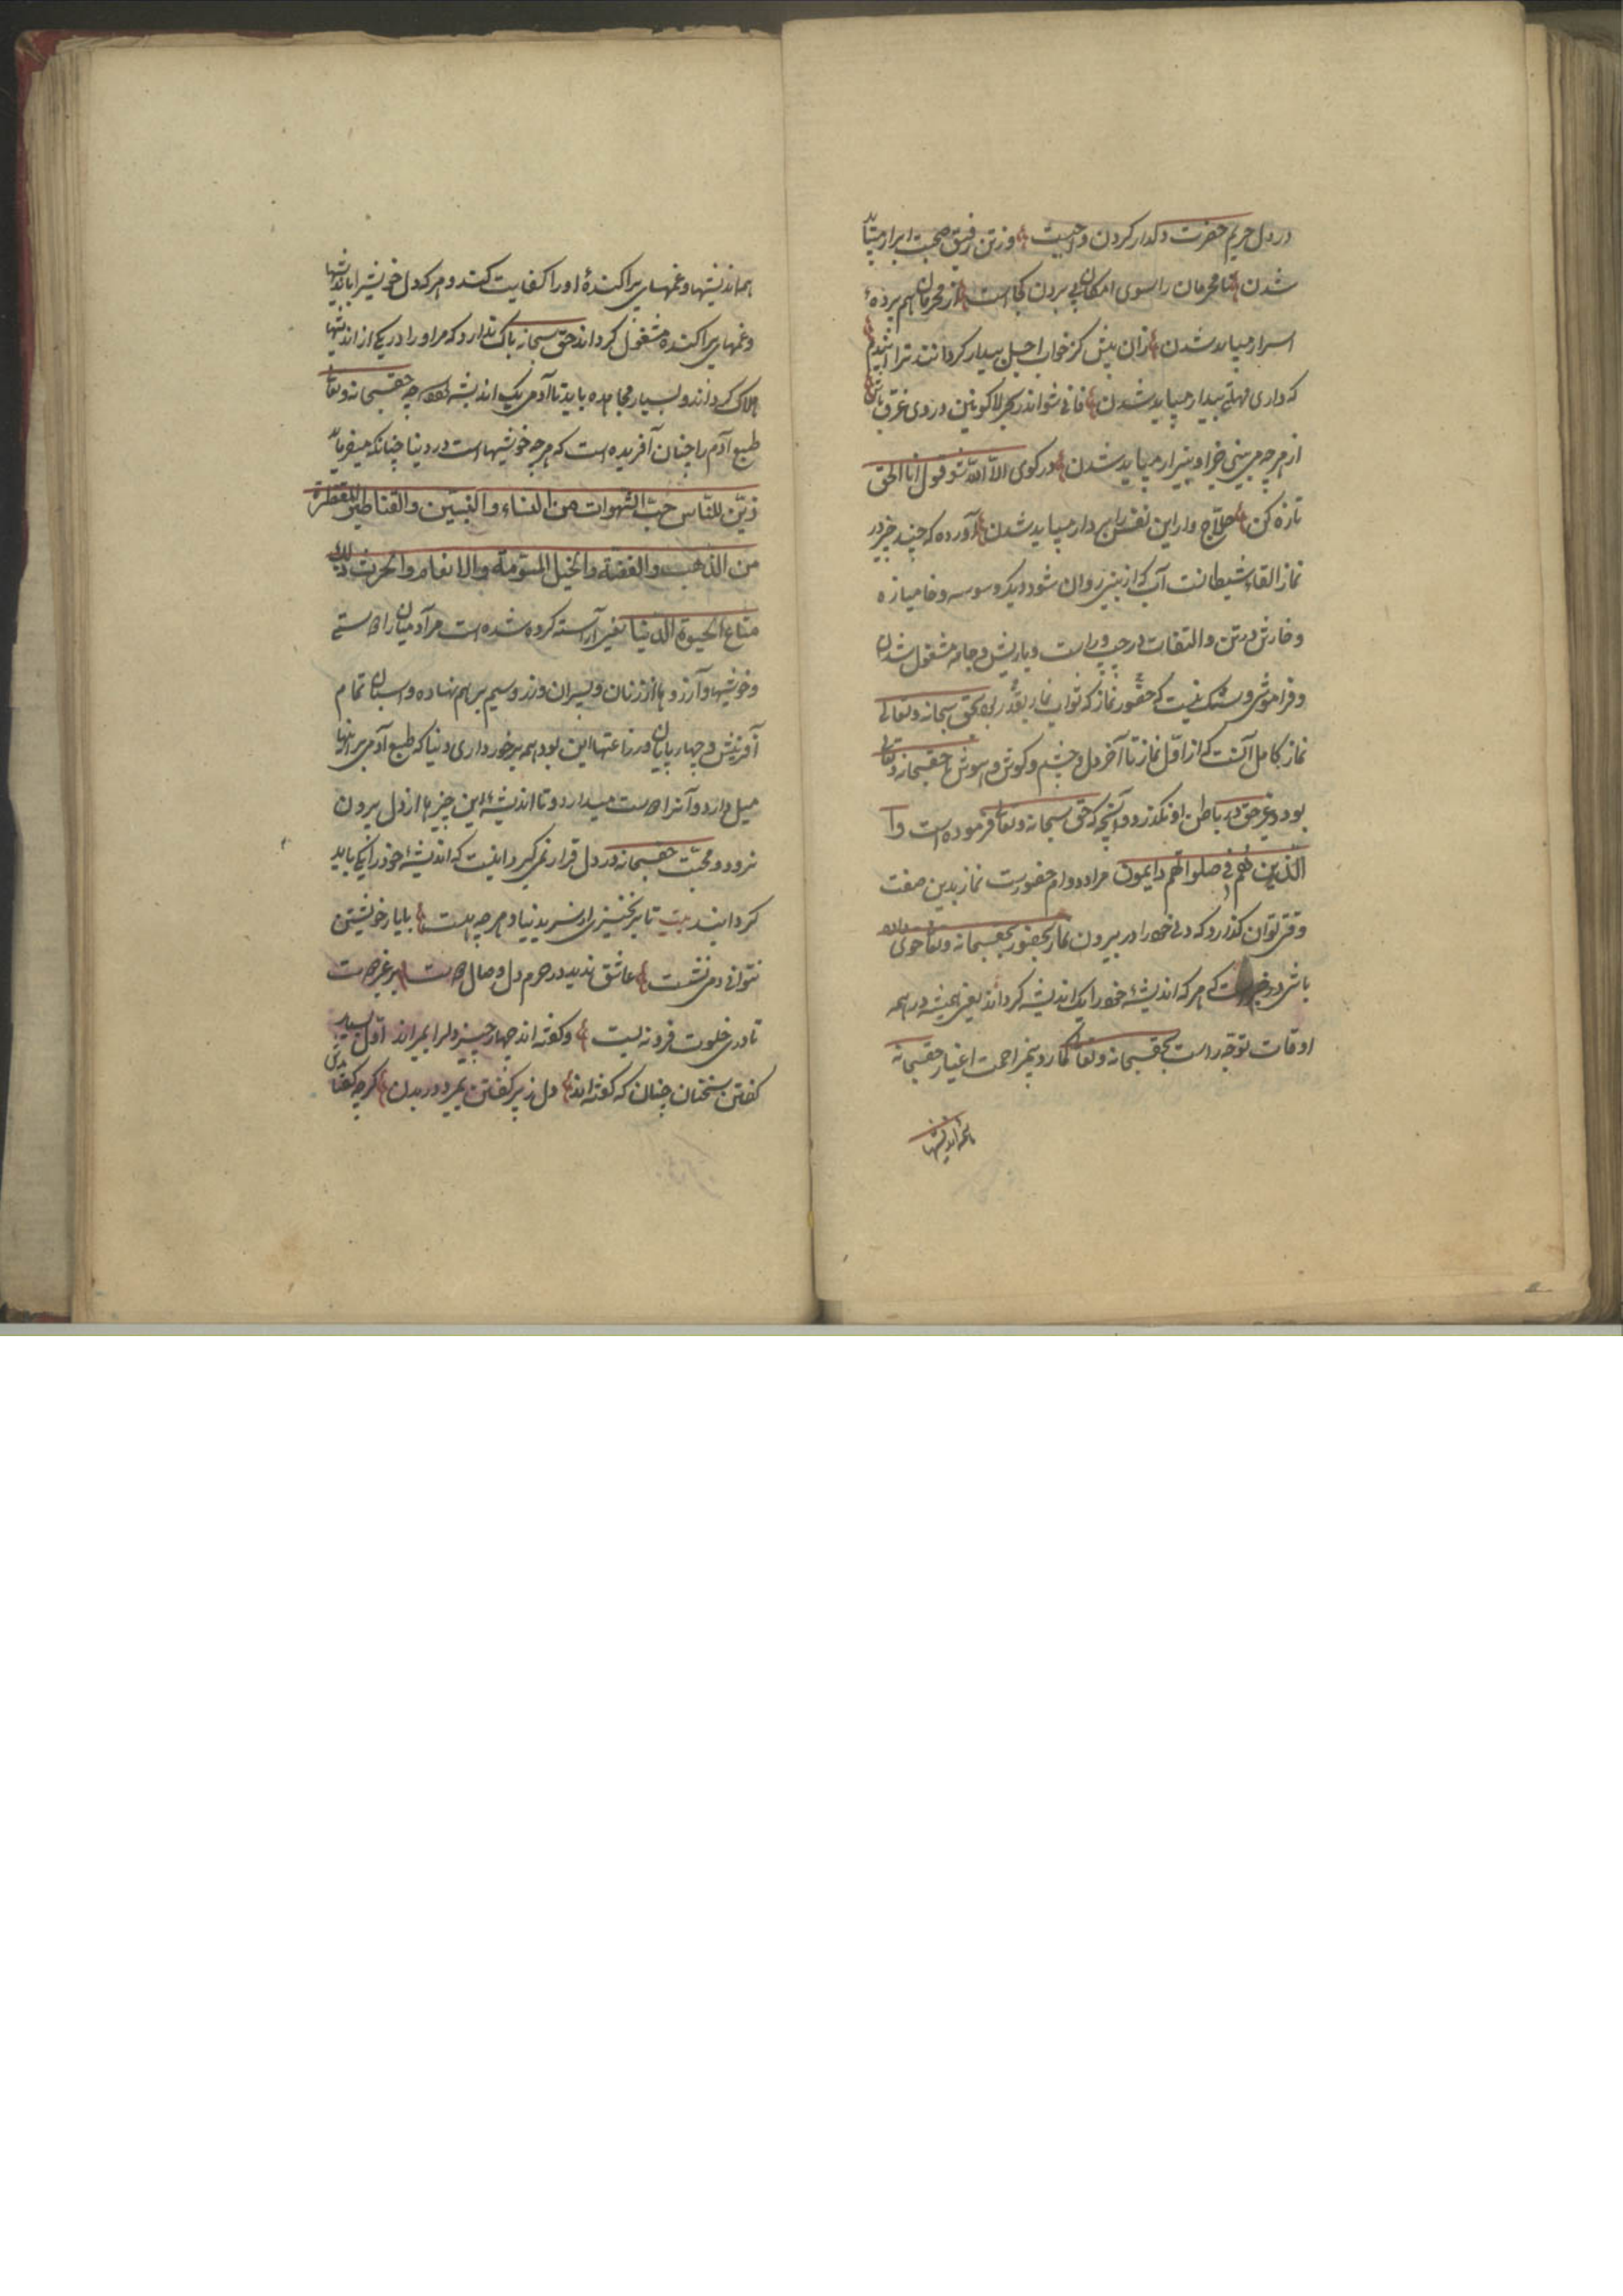 در دل حریم حضرت دلدار کردن واجبست وز تن رفیق صحبت ابرار میباید
شدن نامحرمان را سوی امکان پی بردن کجاست از محرمان هم پردهٔ
اسرار میباید شدن زان پیش کز خواب اجل بیدار کردانند ترا
که داری مهلتی بیدار میباید شدن فانی شو اندر بحر لا کونین در وی غرق
از هرچه می بینی جز او بیزار میباید شدن در کوی الا الله شو قول انا الحق
تازه کن حلاج وار این نفس را بردار میباید شدن آورده که چند چیز در
نماز القاء شیطانست آب که از بینی روان شود دیکر وسوسه و خامیازه
و خارش در تن و التفات در چپ و راست و بازیش و جامه مشغول شدن
و فراموشی و شک نیست که حضور نماز که ثواب نماز بقدر حق سبحانه و تعالی
نماز کامل آنست که از اول نماز تا آخر دل و چشم و کوش و هوش با حقسبحانه و تعالی
بود و غیر حق در باطن او نکذرد و آنچه که حق سبحانه و تعالی فرموده است و
الذین هم فی صلواتهم دایمون مراد دوام حضورست نماز بدین صفت
وقتی توان کذارد که دلی خود را در بیرون نماز بحضور بحقسبحانه و تعالی خوی
باشی در خبرست که هر که اندیشهٔ خود را یک اندیشه کرداند یعنی همیشه در همه
اوقات توجه راست بحقسبحانه و تعالی کمارد و بمزاحمت اغیار حقسبحانه
همه اندیشها
همه اندیشها و غمهای پراکندهٔ او را کفایت کند و هر که دل خویش را باندیشها
و غمهای پراکنده مشغول کرداند حق سبحانه باک ندارد که مر او را در یکی از اندیشها
هلاک کرداند و بسیار مجاهده باید تا آدمی یک اندیشه شود چه حقسبحانه و تعالی
طبع آدم را چنان آفریده است که هرچه خوشیهاست در دنیا چنانکه میفرماید
زین للناس حب الشهوات من النساء و البنین و القناطیر المقنطرة
من الذهب و الفضة و الخیل المسومة و الانعام و الحرث ذلک
متاع الحیوة الدنیا یعنی آراسته کرده شده است مر آدمیان را دوستی
و خوشیها و آرزوها از زنان و پسران و زر و سیم بر هم نهاده و اسبان تمام
آفرینش و چهارپایان و زراعتها این بود همه برخورداری دنیا که طبع آدمی بر اینها
میل دارد و آنرا دوست میدارد و تا اندیشهٔ این چیزها از دل بیرون
نرود و محبت حقسبحانه در دل قرار نمی کیرد اینست که اندیشهٔ خود را یکی باید
کردانید بیت تا برنخیزی از سر دنیا و هرچه هست با یار خویشتن
نتوانی دمی نشست عاشق ندید در حرم دل وصال دوست
تا دری خلوت فرو نه بست و کفته اند چهار چیز دلرا بمیراند اول بسیار
کفتن سخنان چنان که کفته اند دل ز پر کفتن بمیرد در بدن کرچه کفتارش